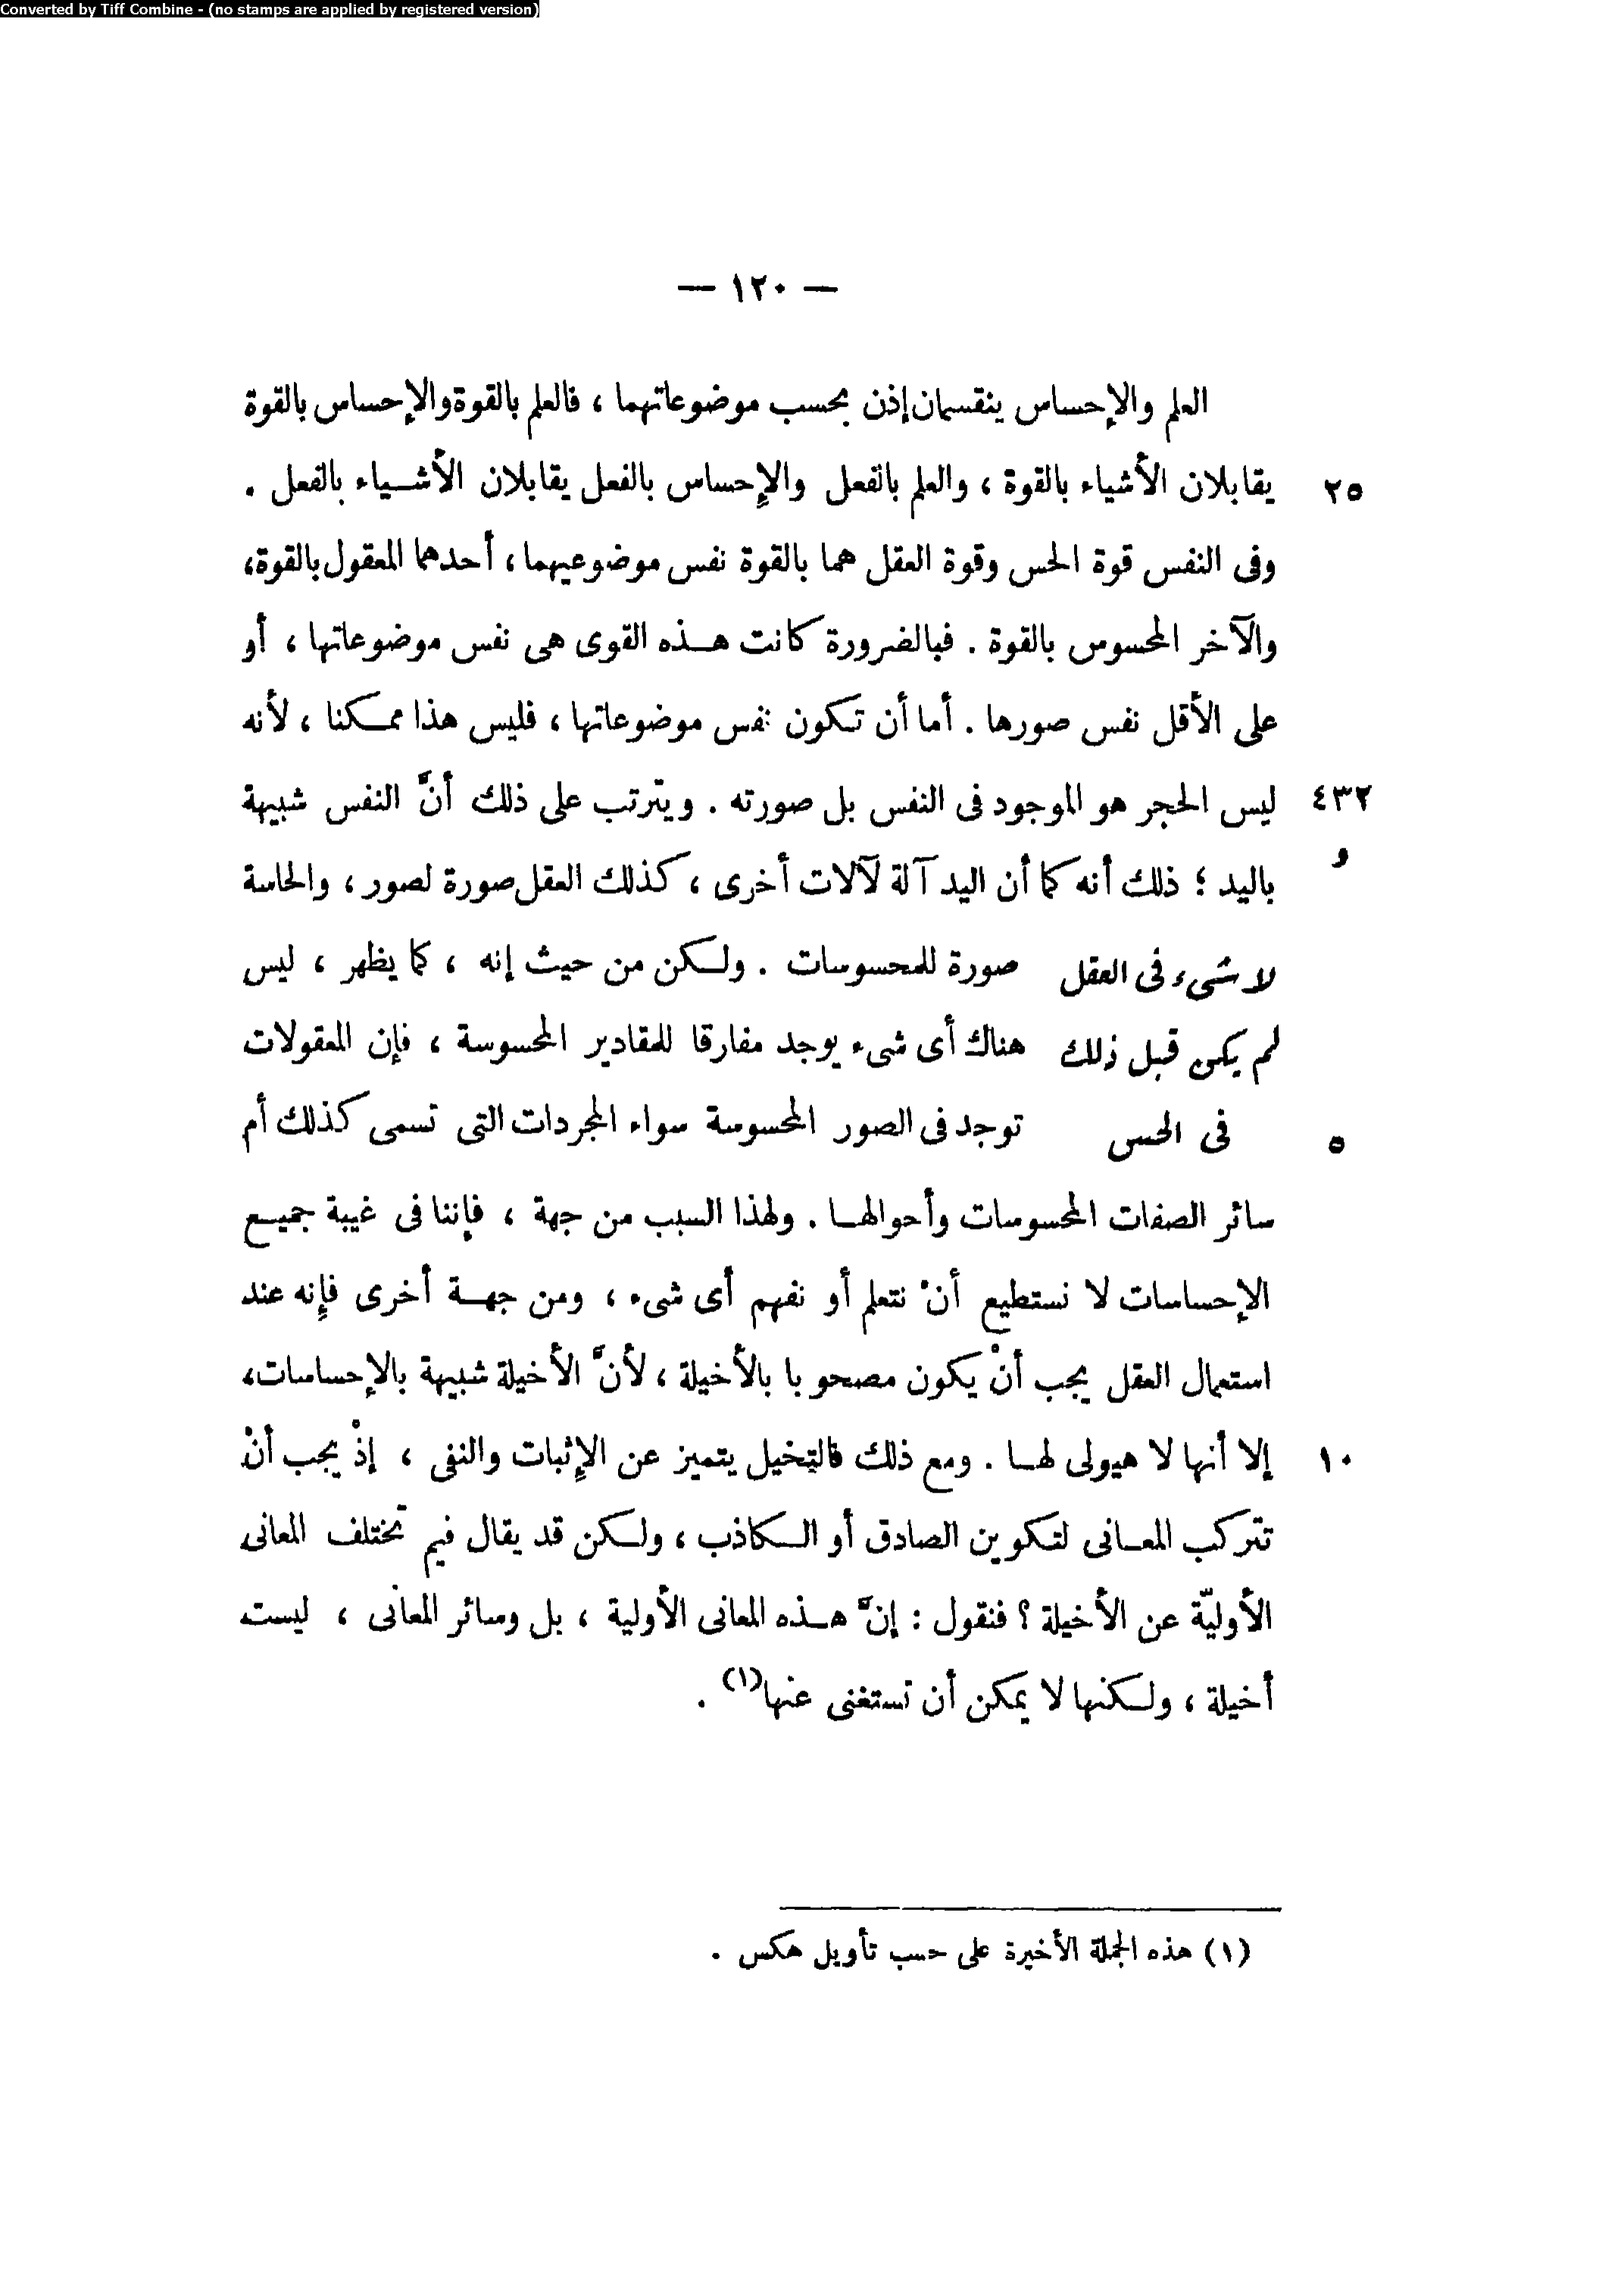 Converted by Tiff Combine - (no stamps are applied by registered version)
— ١٢٠ —
العلم والإحساس ينقسمان إذن بحسب موضوعاتهما ، فالعلم بالقوة والإحساس بالقوة
٢٥ يقابلان الأشياء بالقوة ، والعلم بالفعل والإحساس بالفعل يقابلان الأشياء بالفعل .
وفى النفس قوة الحس وقوة العقل هما بالقوة نفس موضوعيهما ، أحدهما المعقول بالقوة،
والآخر المحسوس بالقوة . فبالضرورة كانت هذه القوى هى نفس موضوعاتها ، أو
على الأقل نفس صورها . أما أن تكون نفس موضوعاتها ، فليس هذا ممكنا ، لأنه
٤٣٢ ليس الحجر هو الموجود فى النفس بل صورته . ويترتب على ذلك أنَّ النفس شبيهة
و باليد ؛ ذلك أنه كما أن اليد آلة لآلات أخرى ، كذلك العقل صورة لصور ، والحاسة
لا شىء فى العقل صورة للمحسوسات . ولكن من حيث إنه ، كما يظهر ، ليس
لم يكن قبل ذلك هناك أى شىء يوجد مفارقا للمقادير المحسوسة ، فإن المعقولات
٥ فى الحس توجد فى الصور المحسوسة سواء المجردات التى تسمى كذلك أم
سائر الصفات المحسوسات وأحوالها . ولهذا السبب من جهة ، فإننا فى غيبة جميع
الإحساسات لا نستطيع أنْ نتعلم أو نفهم أى شىء ، ومن جهة أخرى فإنه عند
استعمال العقل يجب أنْ يكون مصحوبا بالأخيلة ، لأنَّ الأخيلة شبيهة بالإحساسات،
١٠ إلا أنها لا هيولى لها . ومع ذلك فالتخيل يتميز عن الإثبات والنفى ، إذْ يجب أنْ
تتركب المعانى لتكوين الصادق أو الكاذب ، ولكن قد يقال فيم تختلف المعانى
الأوليّة عن الأخيلة ؟ فنقول : إنَّ هذه المعانى الأولية ، بل وسائر المعانى ، ليست
أخيلة ، ولكنها لا يمكن أن تستغنى عنها(١) .
(١) هذه الجملة الأخيرة على حسب تأويل هكس .